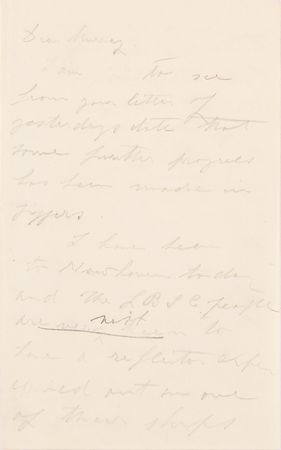 Dear Murray
I am to see
from your letter of
yesterdays date that
some further progress
has been made in
I have been
to Newhaven today
and the L B S C people
are
next
have a reflector
out on one
of their ships